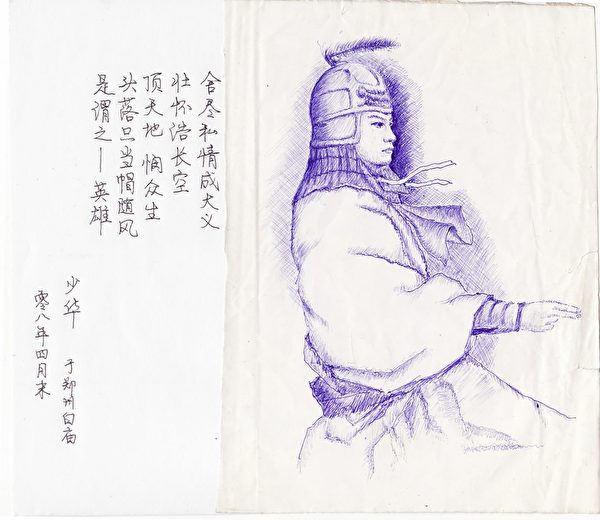 舍尽私情成大义
壮怀浩长空
顶天地 悯众生
头落只当帽随风
是谓之—英雄
少华 于郑州白庙
零八年四月末